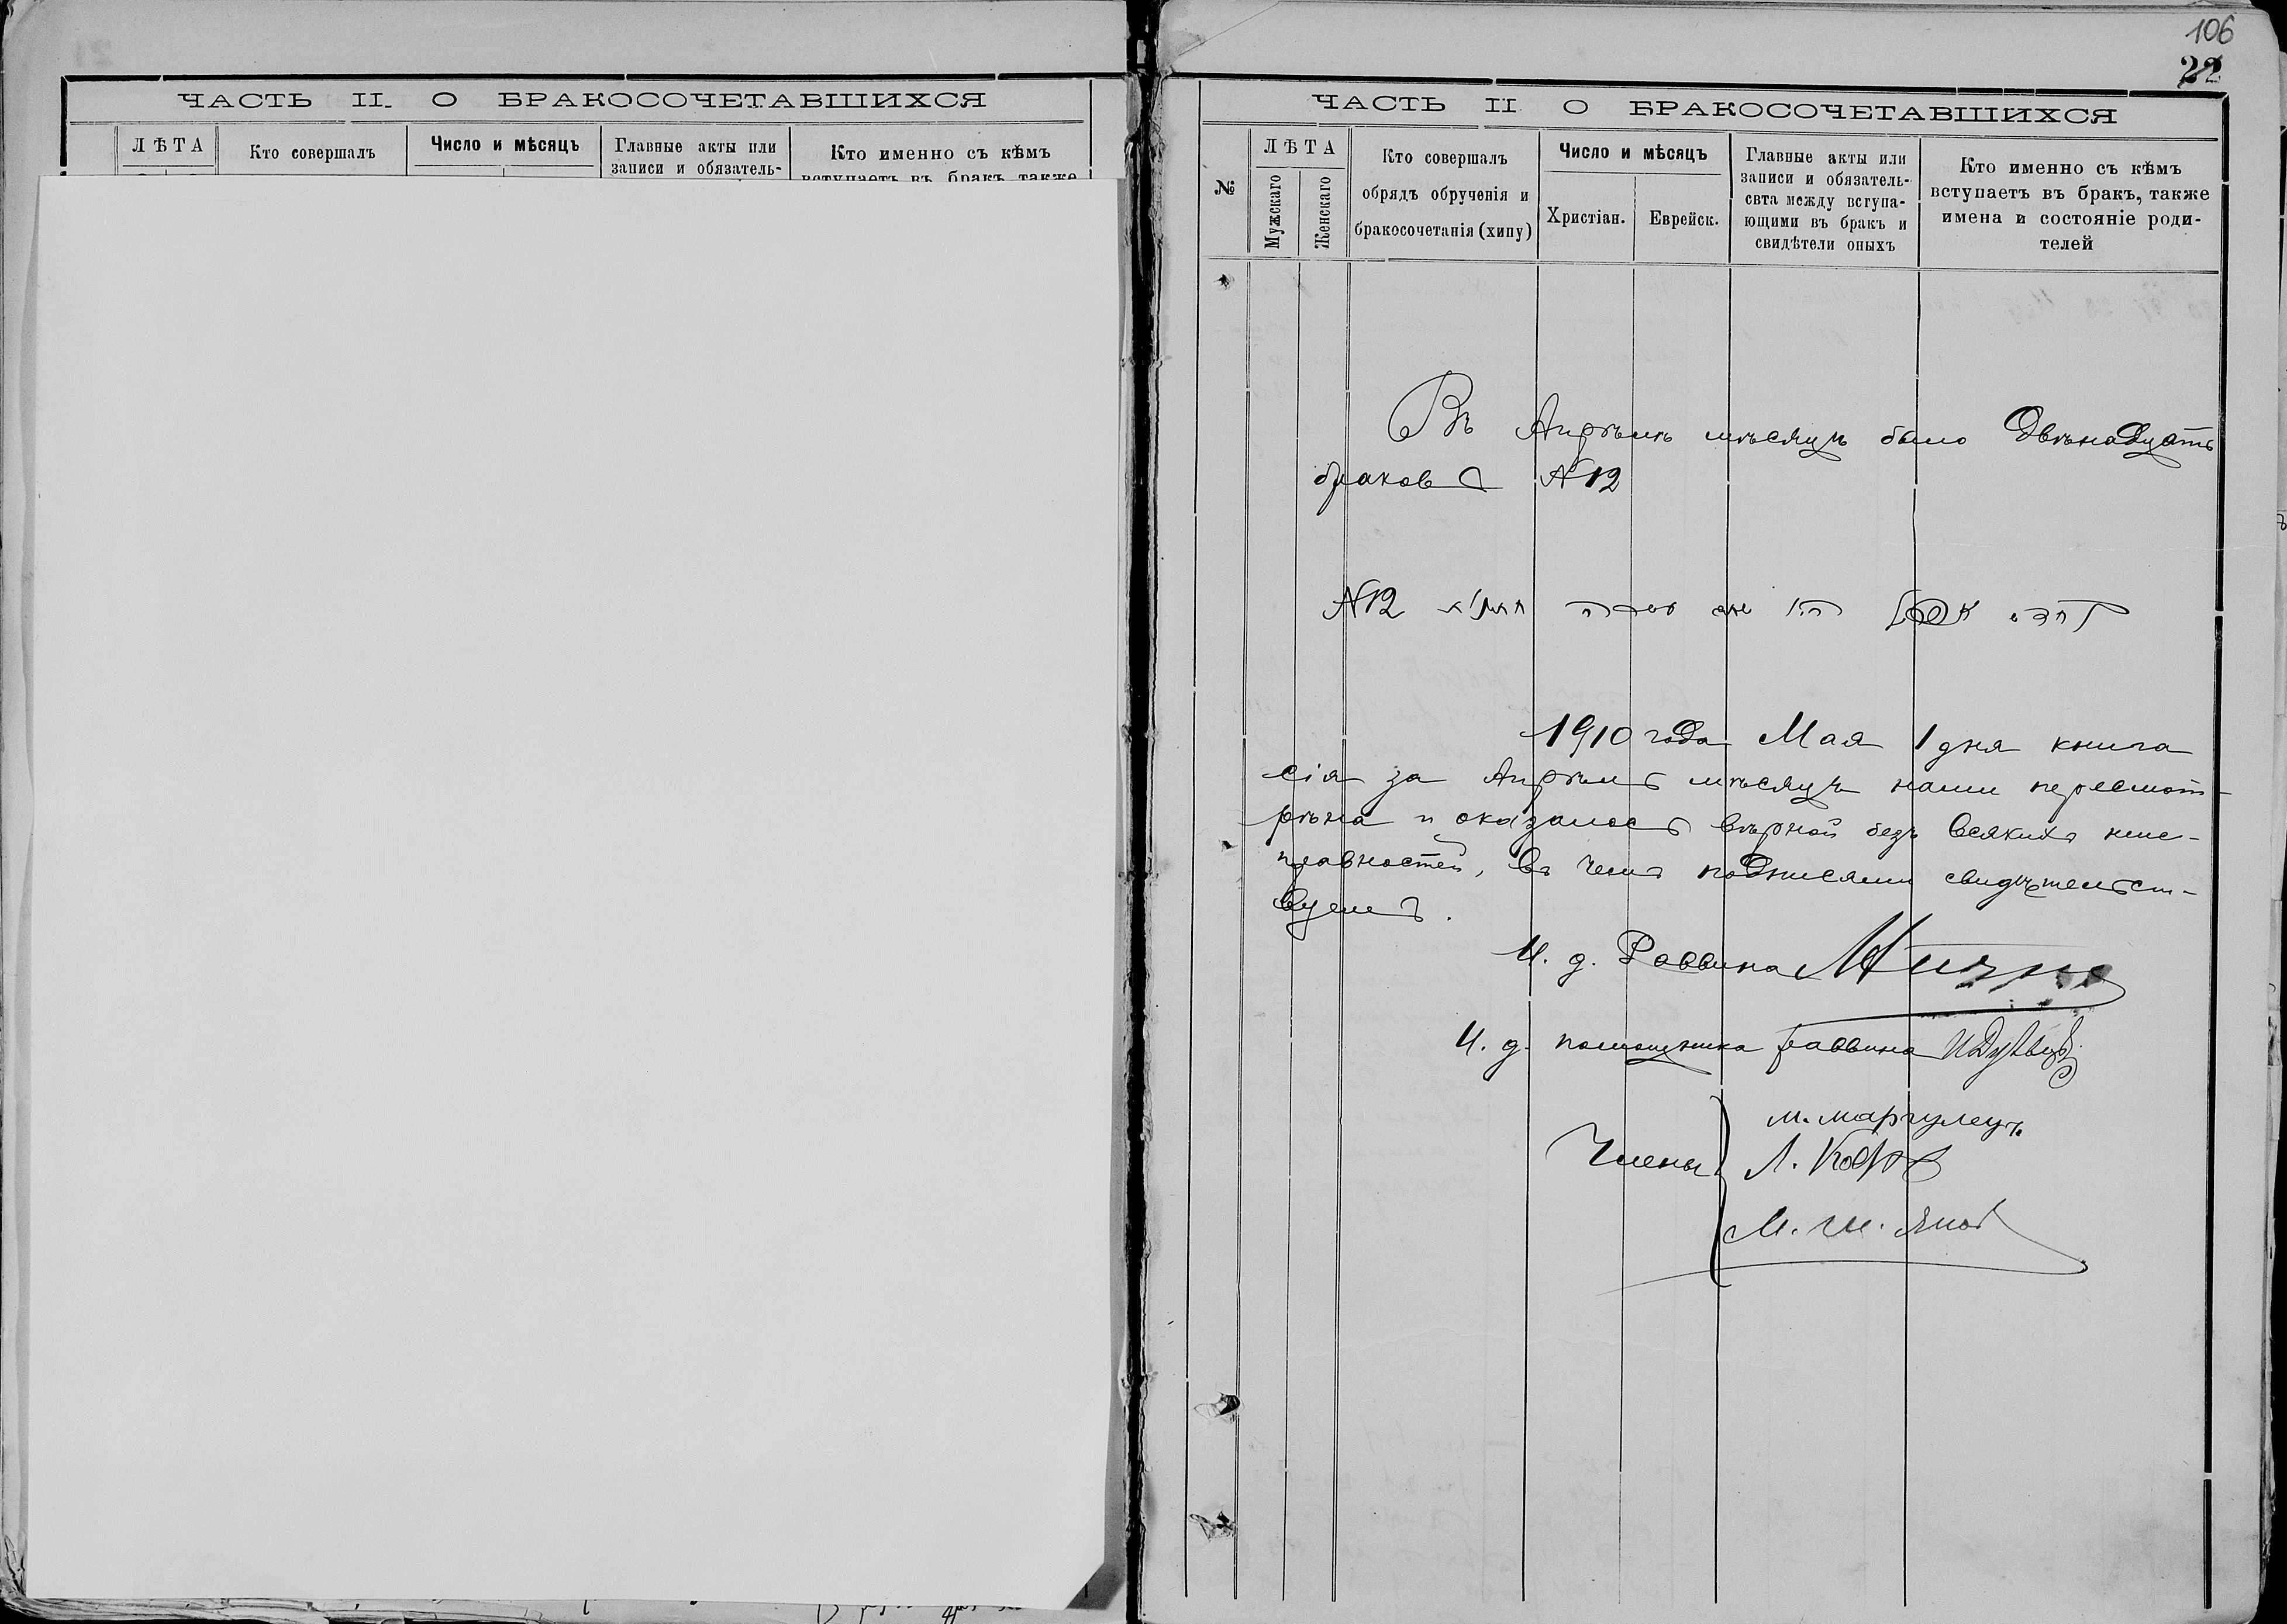 ЧАСТЬ II. О БРАКОСОЧЕТАВШИХСЯ
ЛѢТА
Кто совершалъ
Число и мѣсяцъ
Главные акты или
записи и обязатель-
Кто именно съ кѣмъ
вступаетъ въ бракъ также
106
22
ЧАСТЬ II О БРАКОСОЧЕТАВШИХСЯ
№
ЛѢТА
Мужскаго
Женскаго
Кто совершалъ
обрядъ обрученія и
бракосочетанія (хипу)
Число и мѣсяцъ
Христіан.
Еврейск.
Главные акты или
записи и обязатель-
свта между всгупа-
ющими въ бракъ и
свидѣтели оныхъ
Кто именно съ кѣмъ
вступаетъ въ бракъ, также
имена и состояніе роди-
телей
Въ Апрѣлѣ мѣсяцѣ было двѣнадцать
браковъ №12
№12
1910 года Мая 1 дня книга
сія за Апрѣль мѣсяцъ нами пересмот-
рѣна и оказалась вѣрной безъ всякихъ неис-
правностей, въ чемъ подписями свидѣтельст-
вуемъ.
И. д. Раввина
И. д. помощника раввина
Члены
М. Маргулецъ
Л.
М. Ш.